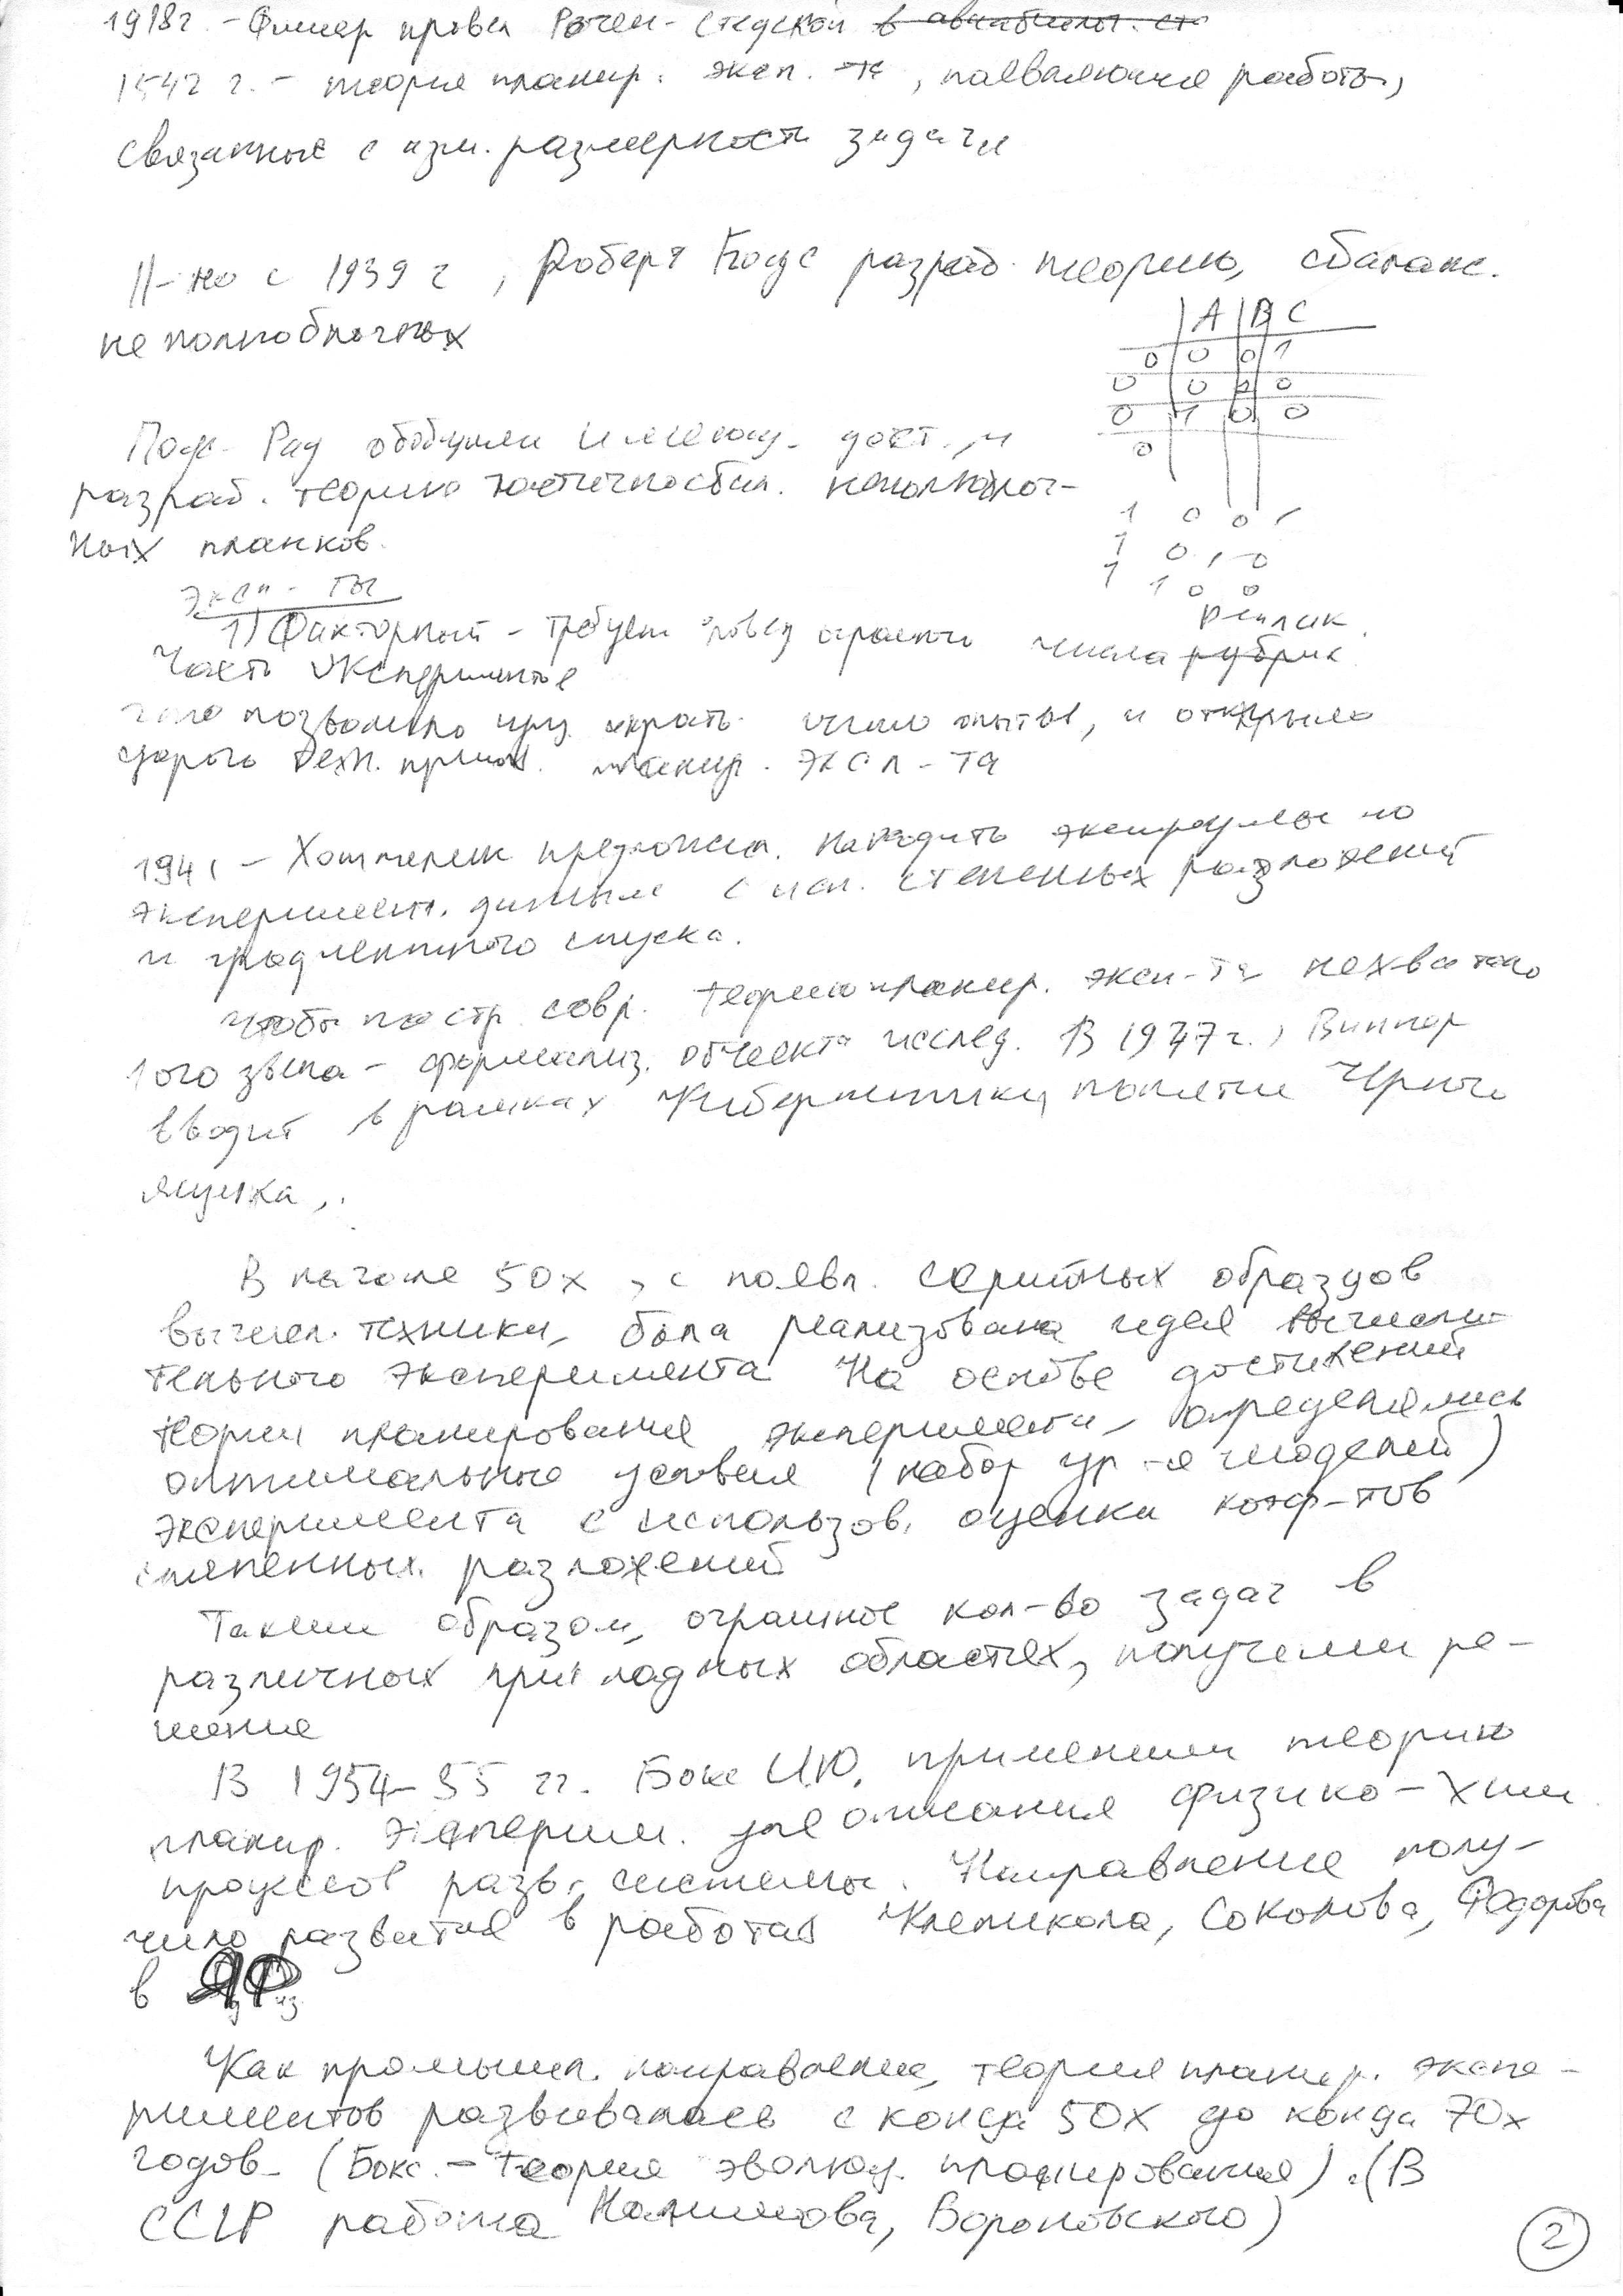 1918г. - Фишер провел Рочем-стедской в
1542 г. - теория планир. эксп.-та, появляются работы,
связанные с изм. размерности задачи
II-но с 1939 г, Роберт Боус разраб. теорию, сбаланс.
неполноблочных
A B C
0 0 0 1
0 0 0 0
0 1 0 0
0
Рад обобщили дост., и
разраб. теорию частичносбал. неполноблоч-
ных планков.
1 0 0 1
1 0 1 0
1 1 0 0
эксп-ты
1) Факторный - требует числа рубрик реплик
Часть эксперимента
позволило сократь число опыты, и открыло
дорогу техн. прилож. планир. эксп-та
1941 - Хоттелинг предложил находить экстремумы по
эксперимент. данным с исп. степенных разложений
и градиентного спуска.
Чтобы постр. совр. теорию планир. эксп-та нехватало
1ого звена - формализ. объекта исслед. В 1947г., Виннер
вводит в рамках Кибернетики понятие Черного
ящика,.
В начале 50х, с появл. серийных образцов
вычисл. техники, была реализована идея вычисли-
тельного эксперимента На основе достижений
теории планирования эксперимента, определялись
оптимальные условия (набор ур-я моделей)
эксперимента с использов. оценки коэф-тов
степенных разложений
Таким образом, огромное кол-во задач в
различных прикладных областях, получили ре-
шение
В 1954-55 гг. Бокс И.Ю. применили теорию
планир. эксперим. для описания физико-хим
процессов разв. системы. Направление полу-
чило развитие в работах Клепикова, Соколова, Федорова
в ЯФ
Как промышл. направление, теория планир. экспе-
риментов развивалась с конца 50х до конца 70х
годов. (Бокс. - Теория эволюц. планирования). (В
СССР работа Налимова, Вороновского)
2